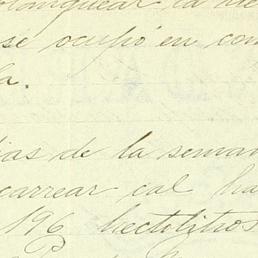 blanquear la
se ocupó en com
la.
ias de la seman
carrear cal ha
196 hectolitros